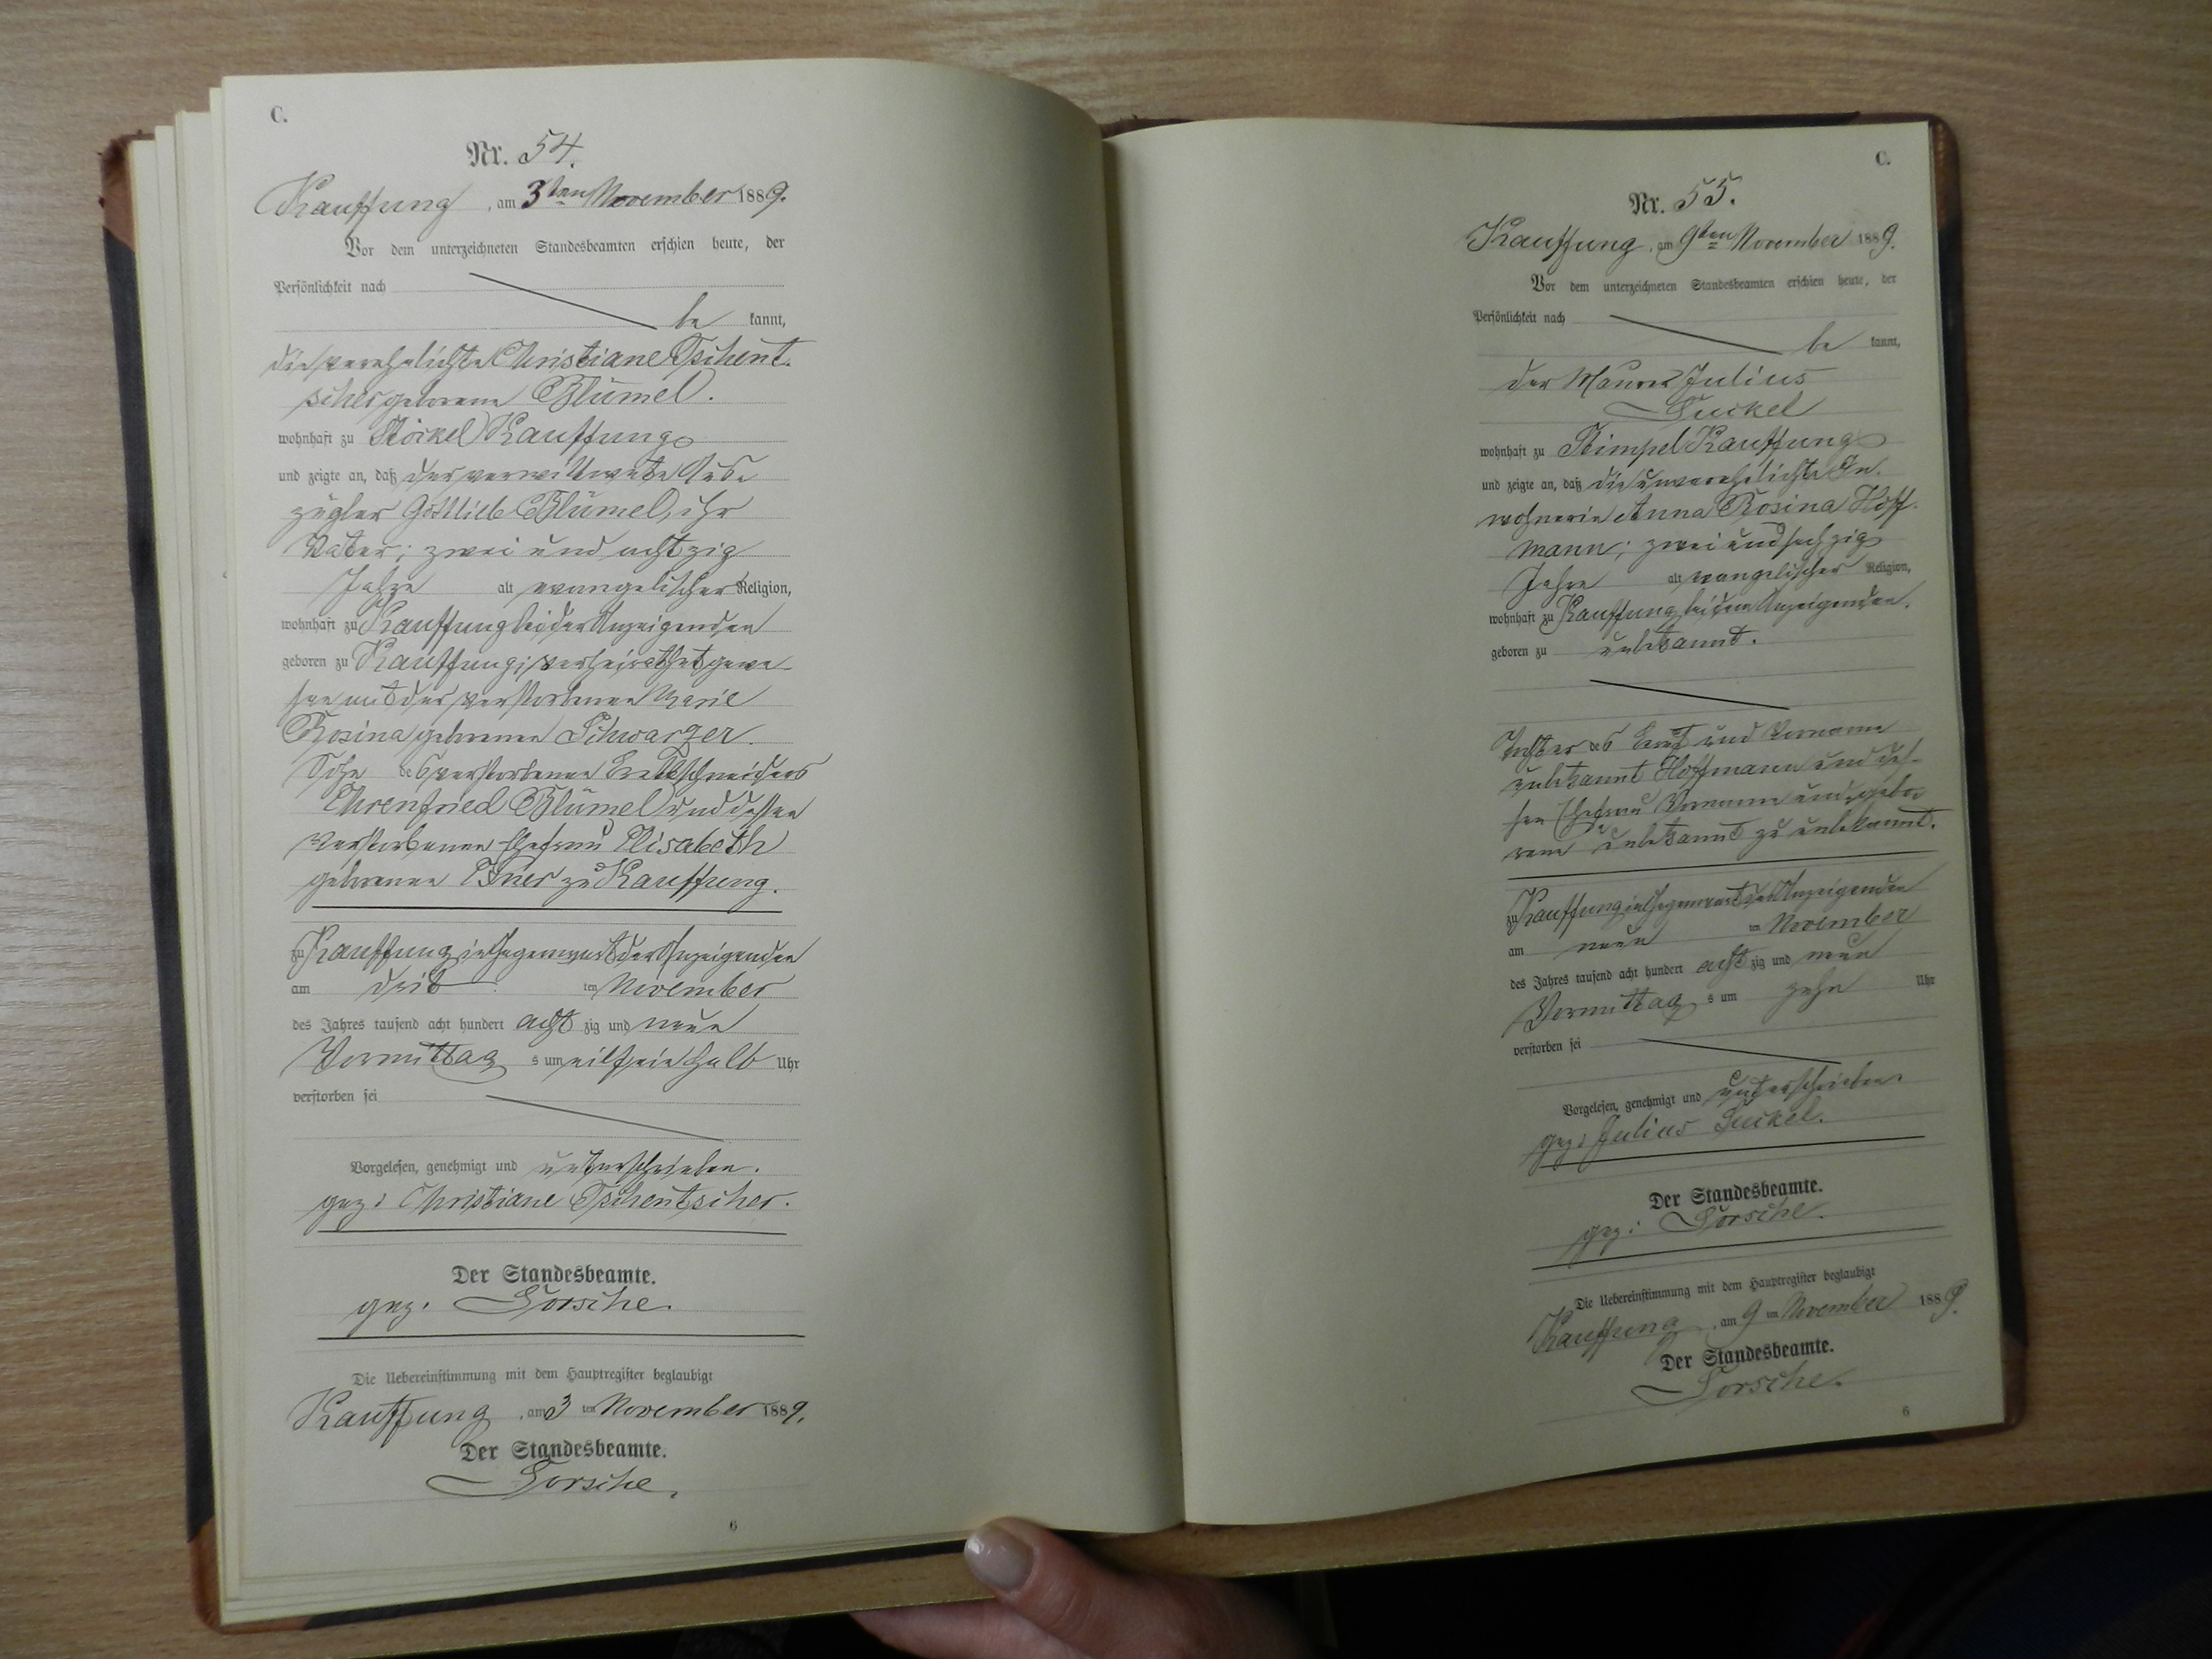 C.
Nr. 54.
Kauffung, am 3ten November 1889.
Vor dem unterzeichneten Standesbeamten erschien heute, der
Persönlichkeit nach
be kannt,
die verehelichte Christiane Tschent-
scher geborene Blümel.
wohnhaft zu Stöckel Kauffung
und zeigte an, daß der verwittwete Aus-
zügler Gottlieb Blümel, ihr
Vater; zwei und achtzig
Jahre alt evangelischer Religion,
wohnhaft zu Kauffung bei der Anzeigenden
geboren zu Kauffung; verheirathet gewe-
sen mit der verstorbenen Marie
Rosina geborenen Schwarzer.
Sohn des verstorbenen Brettschneiders
Ehrenfried Blümel und dessen
verstorbenen Ehefrau Elisabeth
geborenen zu Kauffung.
zu Kauffung in Gegenwart der Anzeigenden
am drit ten November
des Jahres tausend acht hundert acht zig und neun
Vormittag s um eilfeinhalb Uhr
verstorben sei
Vorgelesen, genehmigt und unterschrieben.
gez: Christiane Tschentscher.
Der Standesbeamte.
gez. Sorsche.
Die Uebereinstimmung mit dem Hauptregister beglaubigt
Kauffung, am 3 ten November 1889.
Der Standesbeamte.
Sorsche.
6
C.
Nr. 55.
Kauffung, am 9ten November 1889.
Vor dem unterzeichneten Standesbeamten erschien heute, der
Persönlichkeit nach
be kannt,
der Maurer Julius
Suckel
wohnhaft zu Stimpel Kauffung
und zeigte an, daß die unverehelichte In-
wohnerin Anna Rosina Hoff-
mann; zwei und sechzig
Jahre alt evangelischer Religion,
wohnhaft zu Kauffung bei dem Anzeigenden.
geboren zu unbekannt.
Tochter des Beruf und Vorname
unbekannt Hoffmann und des-
sen Ehefrau Vorname und gebo-
rene unbekannt zu unbekannt.
zu Kauffung in Gegenwart des Anzeigenden
am neun ten November
des Jahres tausend acht hundert acht zig und neun
Vormittag s um zehn Uhr
verstorben sei
Vorgelesen, genehmigt und unterschrieben.
gez: Julius Suckel.
Der Standesbeamte.
gez: Sorsche.
Die Uebereinstimmung mit dem Hauptregister beglaubigt
Kauffung, am 9 ten November 1889.
Der Standesbeamte.
Sorsche.
6